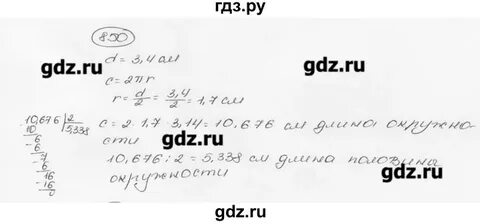 гдз.ру
850
d = 3,4 см
gdz.ru
gdz.ru
c = 2πr
r = d/2 = 3,4/2 = 1,7 см
10,676 | 2
10 5,338
6
- 6
7
6
16
- 16
0
c = 2 · 1,7 · 3,14 = 10,676 см длина окружно-
сти
gdz.ru
gdz.ru
10,676 : 2 = 5,338 см длина половина
окружности
gdz.ru
gdz.ru